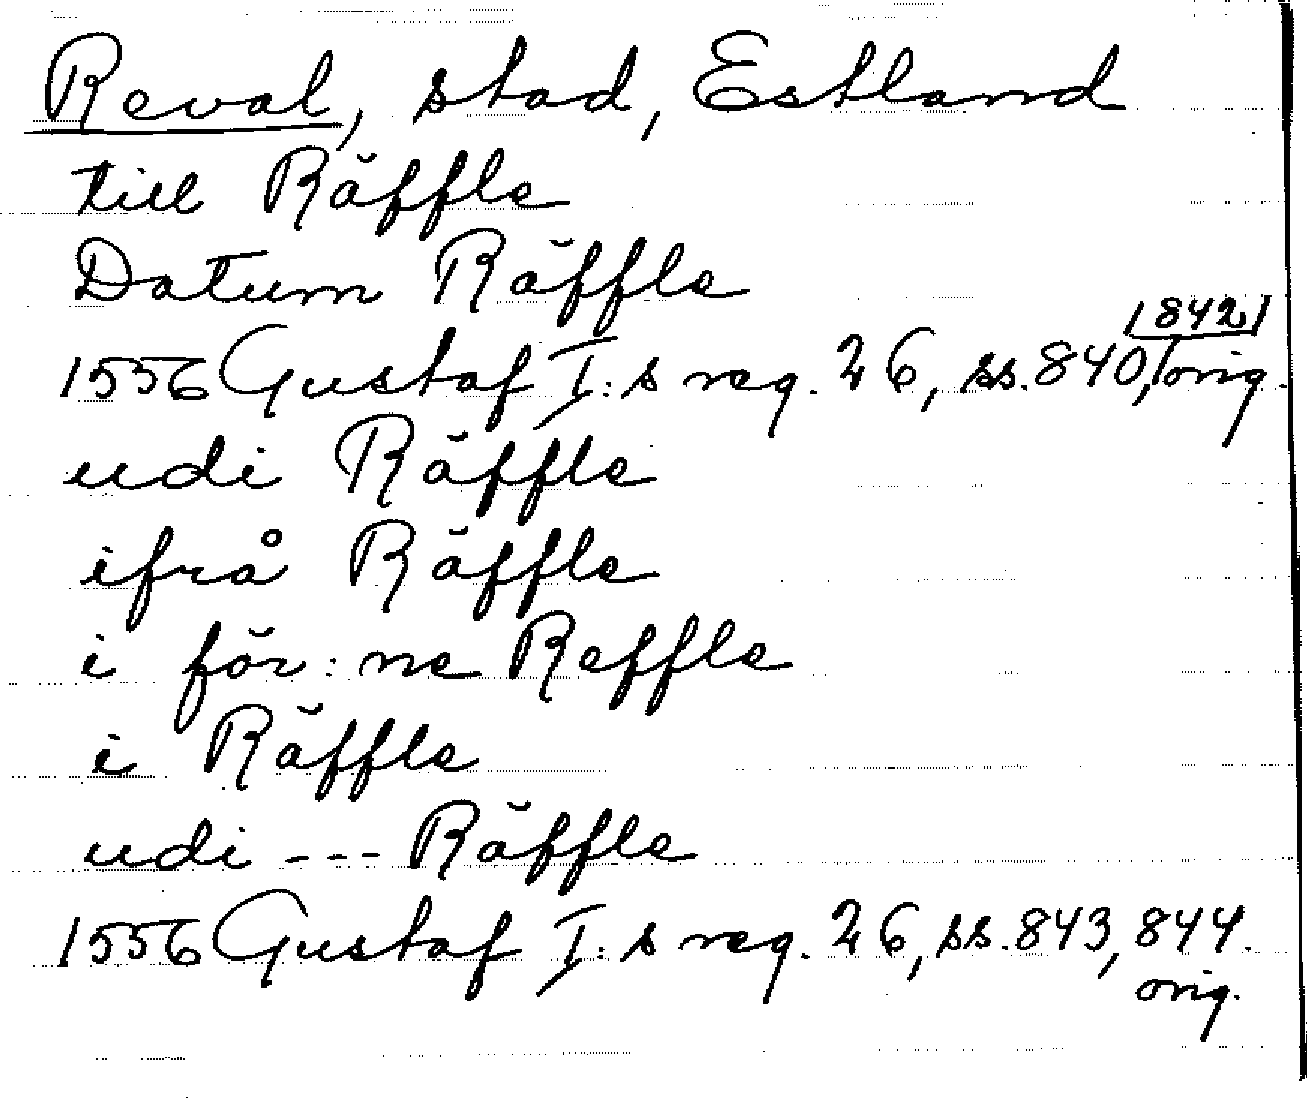 Reval, stad, Estland
till Räffle
Datum Räffle
1556 Gustaf I:s reg. 26, ss. 840, 842 orig.
udi Räffle
ifrå Räffle
i för:ne Reffle
i Räffle
udi --- Räffle
1556 Gustaf I:s reg. 26, ss. 843, 844.
orig.